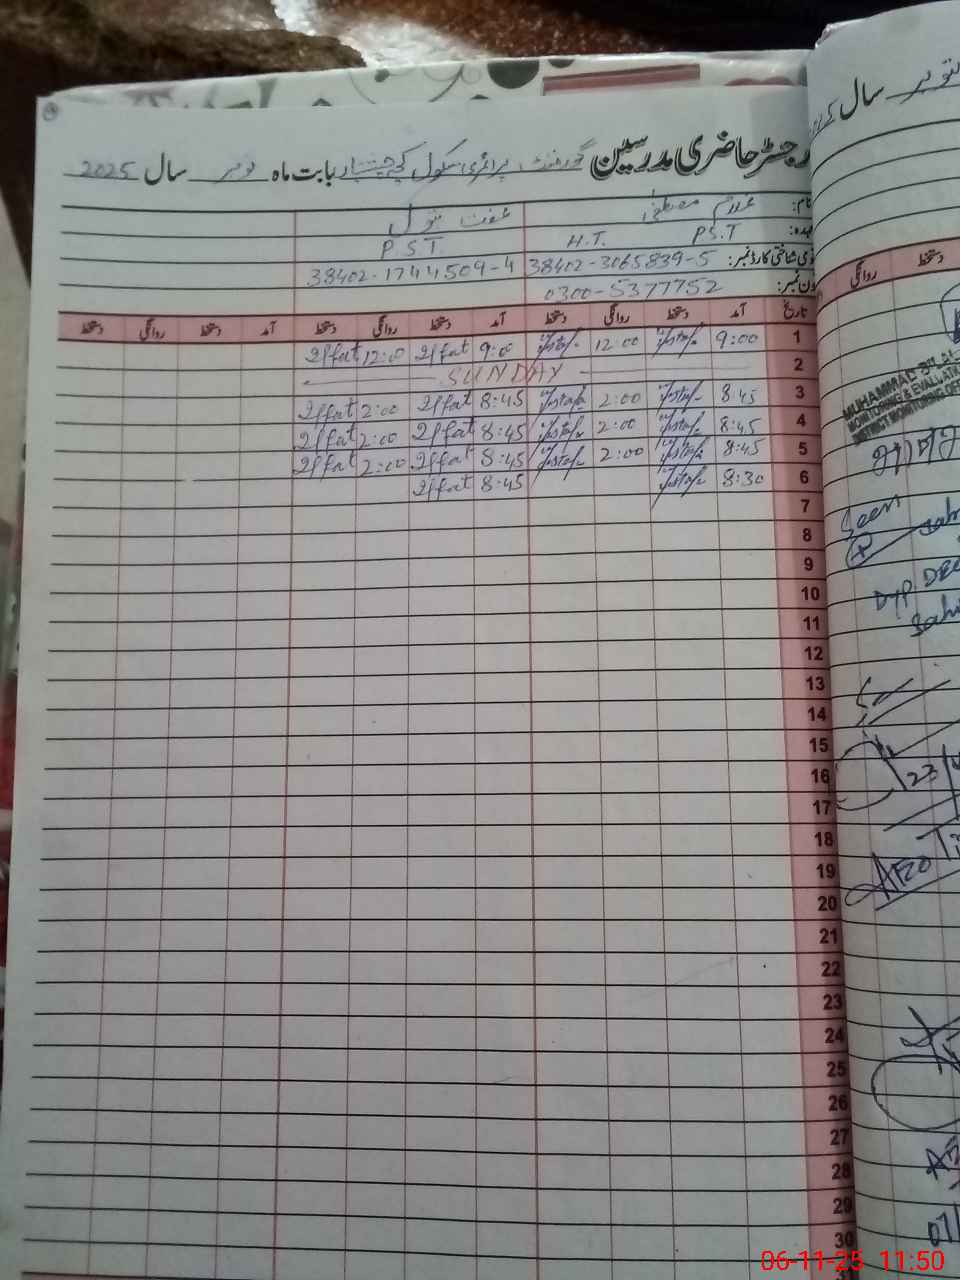 رجسٹر حاضری مدرسین گورنمنٹ پرائمری سکول بابت ماہ نومبر سال 2025
نام: غلام مصطفیٰ عفت بتول
عہدہ: P.S.T H.T. P.S.T.
قومی شناختی کارڈ نمبر: 38402-3065839-5 38402-1744509-4
فون نمبر: 0300-5377752
تاریخ آمد دستخط روانگی دستخط آمد دستخط روانگی دستخط آمد دستخط روانگی دستخط
1 9:00 Mustafa 12:00 Mustafa 9:00 Iffat 12:00 Iffat
2 SUNDAY
3 8:45 Mustafa 2:00 Mustafa 8:45 Iffat 2:00 Iffat
4 8:45 Mustafa 2:00 Mustafa 8:45 Iffat 2:00 Iffat
5 8:45 Mustafa 2:00 Mustafa 8:45 Iffat 2:00 Iffat
6 8:30 Mustafa 8:45 Iffat
7
8
9
10
11
12
13
14
15
16
17
18
19
20
21
22
23
24
25
26
27
28
29
30
سال
دستخط روانگی
MUHAMMAD
MONITORING & EVALUATION
DISTRICT MONITORING
Seen
Dyp. DEO
23/
AEO
07/
06-11-25 11:50